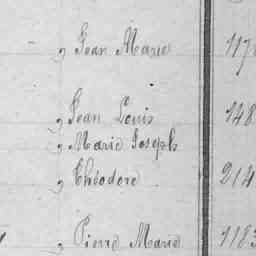 „ Jean Marie 117
„ Jean Louis 148
„ Marie Joseph
„ Théodore 214
„ Pierre Marie 1183